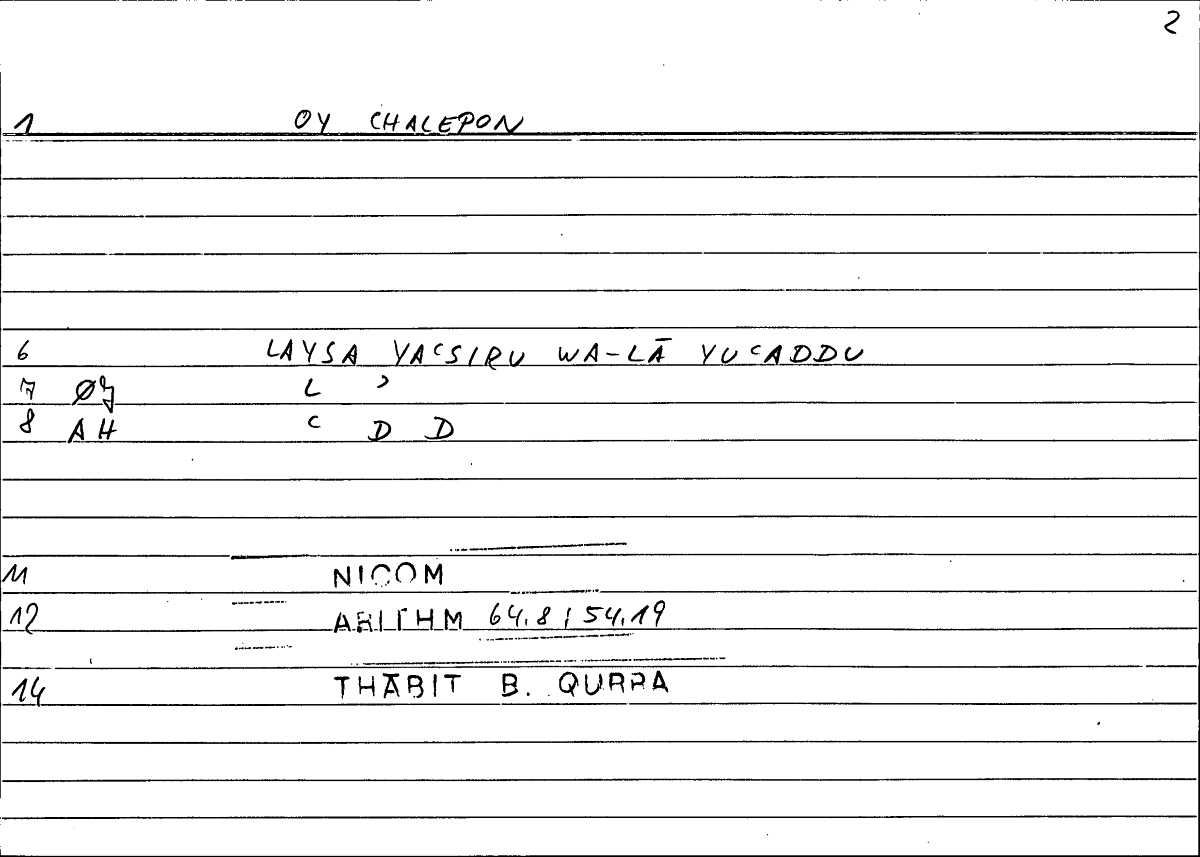 2
1 OY CHALEPON
6 LAYSA YAʿSIRU WA-LĀ YUʿADDU
7 L ʾ
8 AH ʿ D D
11 NICOM
12 ARITHM 64.8 / 54.19
14 THĀBIT B. QURRA